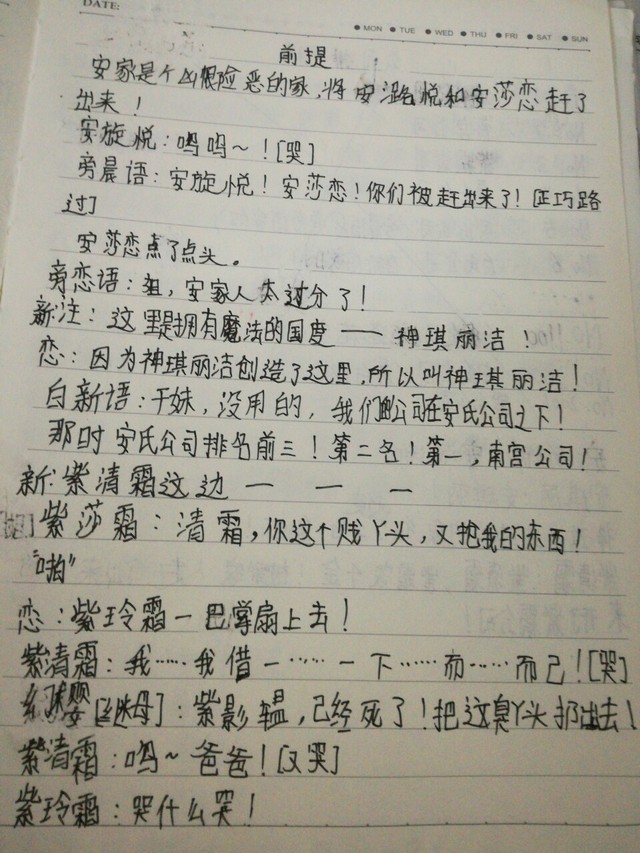 DATE:
MON TUE WED THU FRI SAT SUN
前提
安家是个凶狠险恶的家,将安潞悦和安莎恋赶了
出来!
安旋悦:呜呜~![哭]
旁晨语:安旋悦!安莎恋!你们被赶出来了![正巧路
过]
安莎恋点了点头。
旁恋语:姐,安家人太过分了!
新:注:这里是拥有魔法的国度——神琪丽洁!
恋:因为神琪丽洁创造了这里,所以叫神琪丽洁!
白新语:干妹,没用的,我们公司在安氏公司之下!
那时安氏公司排名前三!第二名!第一,南宫公司!
新:紫清霜这边一一一
紫莎霜:清霜,你这个贱丫头,又抢我的东西!
"啪"
恋:紫玲霜一巴掌扇上去!
紫清霜:我……我借一……一下……而……而已![哭]
[继母]:紫影韫,已经死了!把这臭丫头扔出去!
紫清霜:呜~爸爸![又哭]
紫玲霜:哭什么哭!